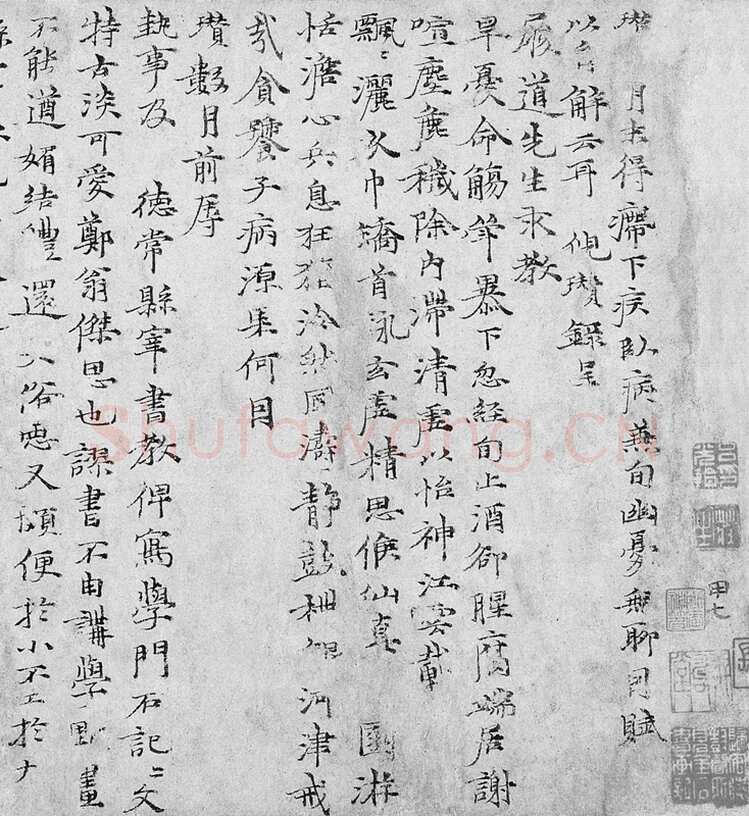 甲七
瓚 月末得滯下疾卧病兼旬幽憂無聊因賦
以自解云耳 倪瓚錄呈
履道先生求教
旱憂命觴 暴下忽經旬止酒卻腥腐端居謝
喧塵麁穢除內滯清虛以怡神江雲載
飄〻灑衣巾矯首泳玄虛精思候仙真
恬澹心兵息狂 泠然 癖靜鼓枻 河津戒
哉貪饕子病源果何因
瓚數月前辱
執事及 德常縣宰書教俾寫學門石記〻文
特古淡可愛鄭翁傑思也謬書不由講學點畫
不能遒媚結體還入俗惡又頗便於小不工於大
Shufawang.CN